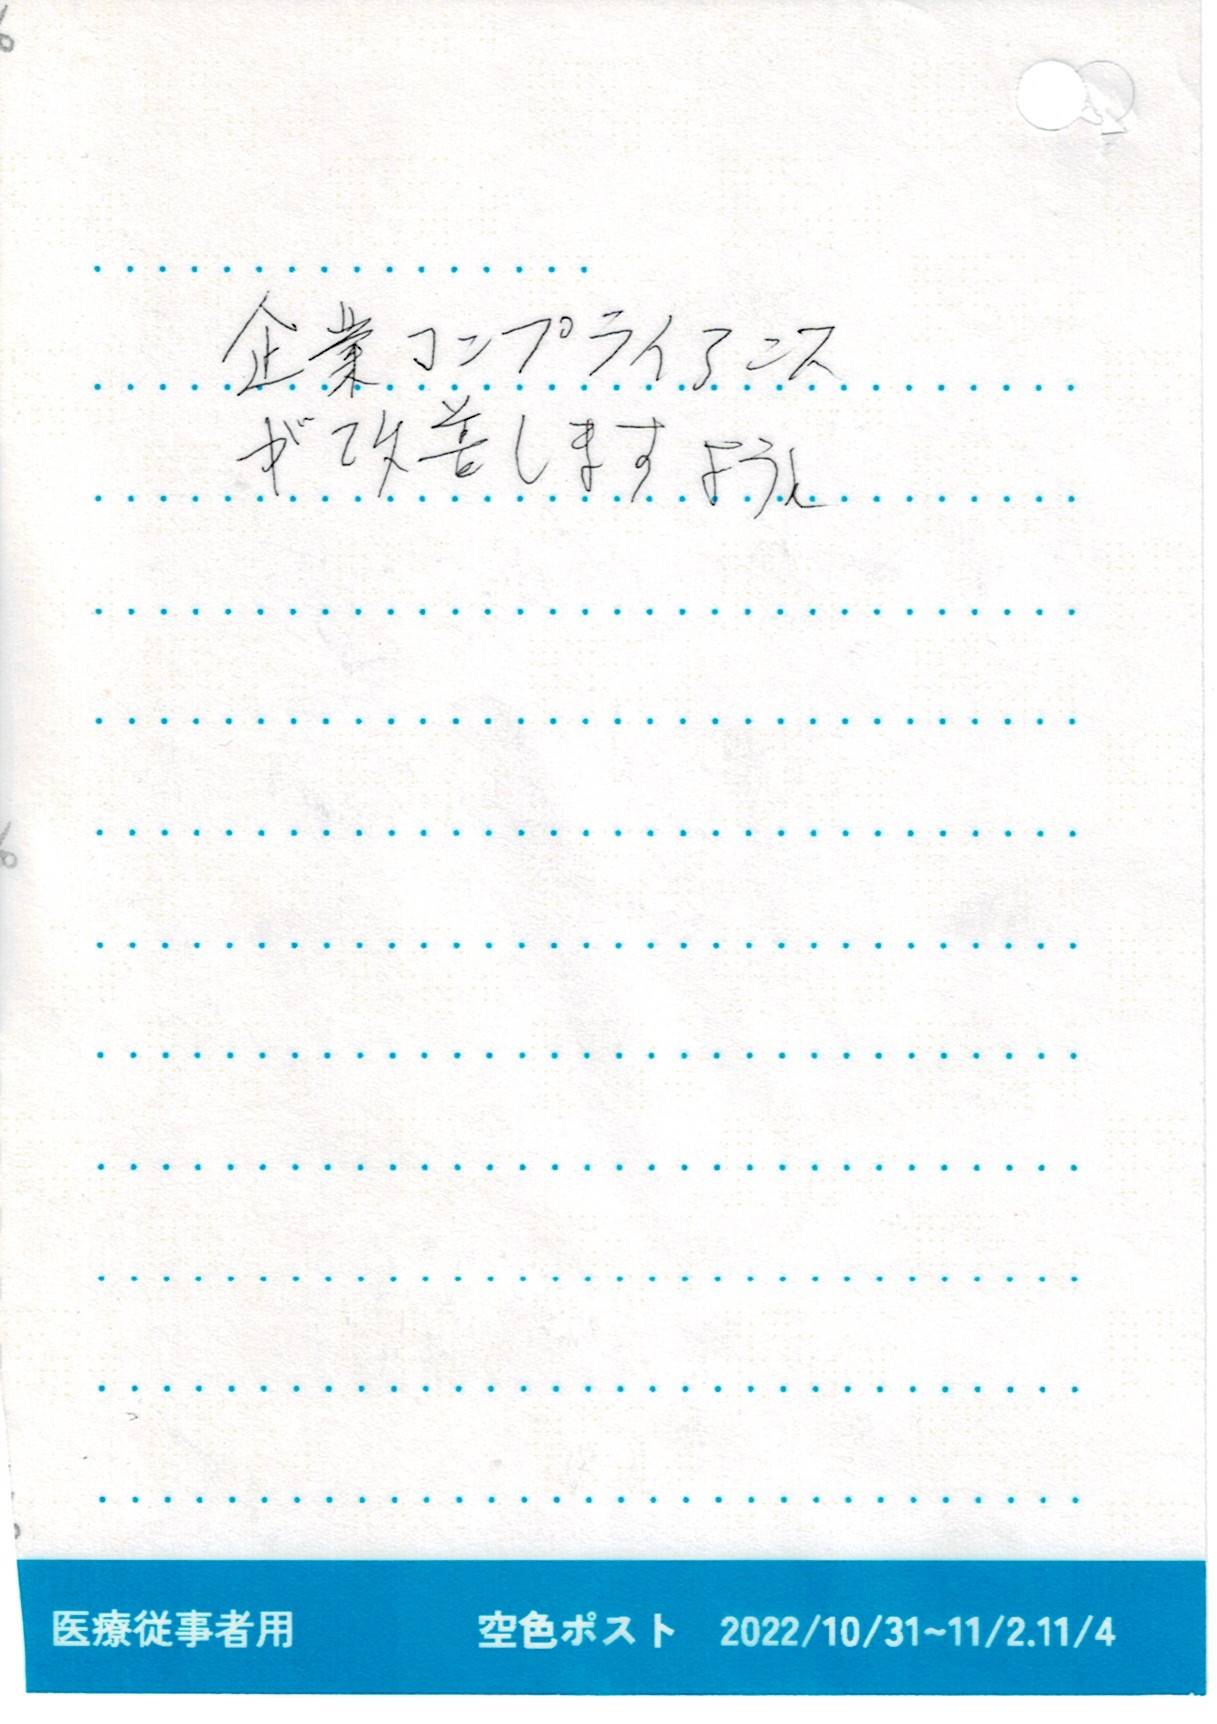 企業コンプライアンス
が改善しますように
医療従事者用 空色ポスト 2022/10/31~11/2.11/4